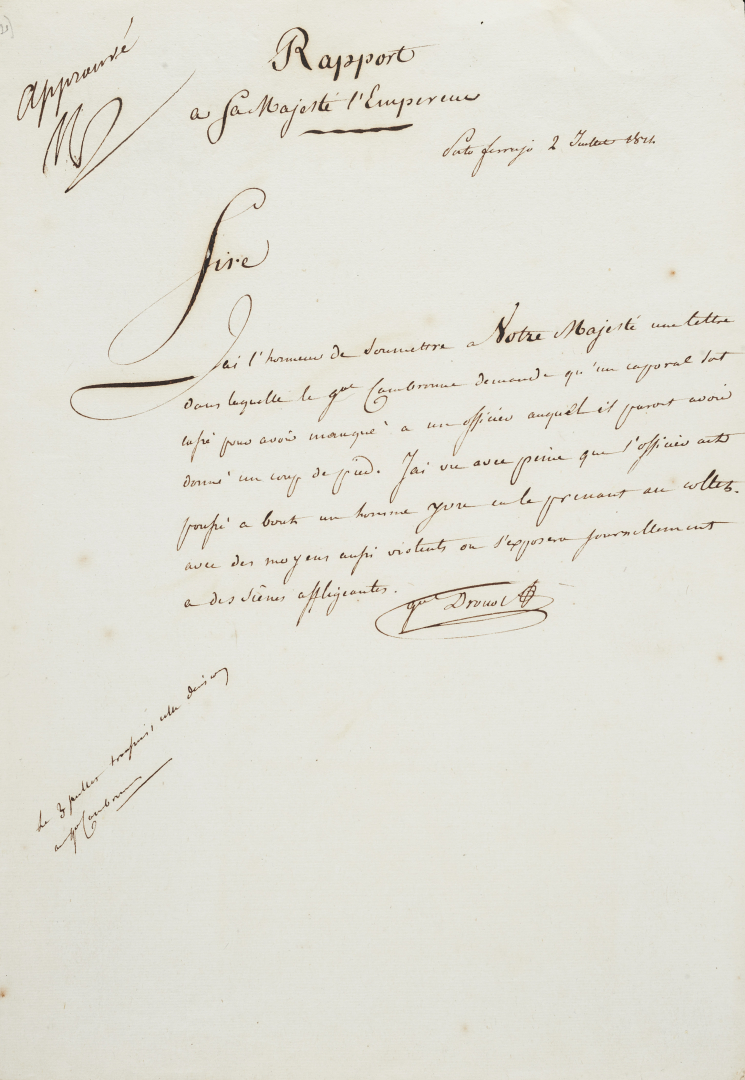 Approuvé
N
Rapport
a Sa Majesté l'Empereur
Porto ferrajo 2 Juillet 1814
Sire
Jai l'honneur de soumettre a Votre Majesté une lettre
dans laquelle le gal Cambronne demande qu'un caporal soit
cassé pour avoir manqué a un officier auquel il paroit avoir
donné un coup de pied. Jai vu avec peine que l'officier ait
poussé a bout un homme yvre en le prenant au collet.
avec des moyens aussi violents on s'exposera journellement
a des scènes affligeantes.
gal Drouot
Le 3 juillet transmis cette décision
au gal Cambronne